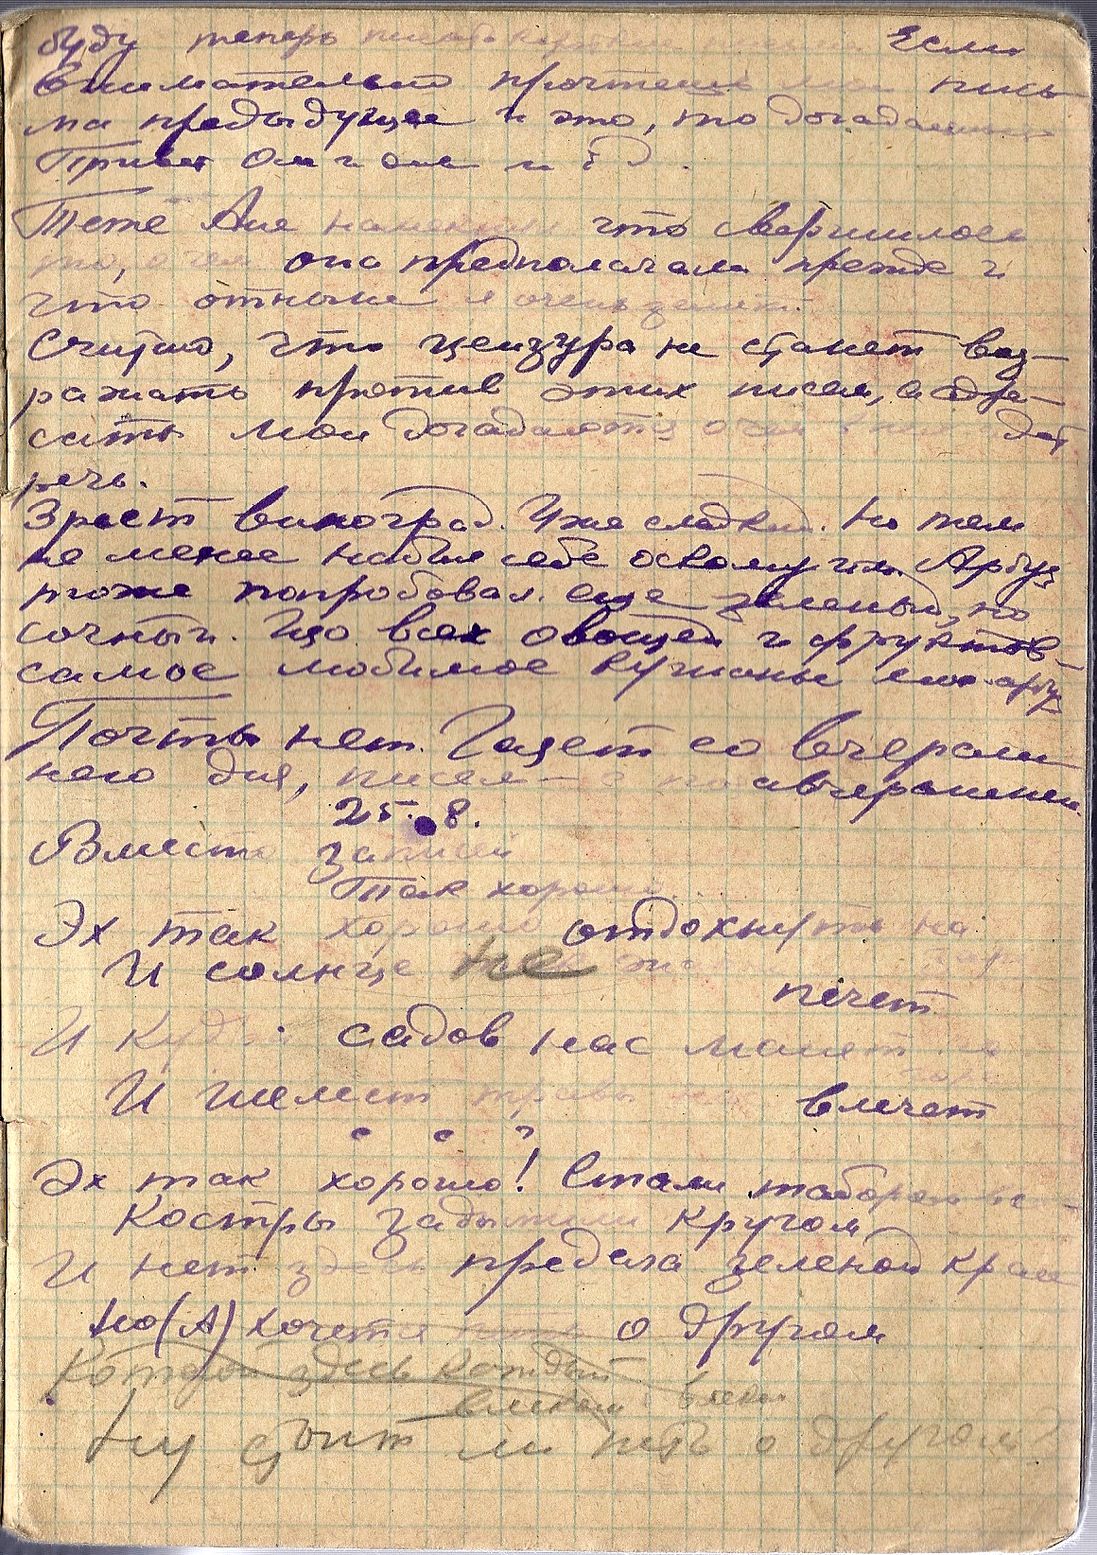 буду теперь писать короткие письма Если
внимательно прочтешь мои пись
ма предыдущее и это, то догадаешься
Привет Оле и
Тете Ане намекни что свершилось
то, о чем она предполагала прежде и
что отныне я очень занят.
Считаю, что цензура не станет воз-
ражать против этих писем, а адре-
саты мои догадаются о чем в них идет
речь.
Зреет виноград. Уже сладкий. Но тем
не менее набил себе оскомину им. Арбуз
тоже попробовал. еще зеленый, но
сочный. Изо всех овощей и фруктов-
самое любимое кушанье мое арбуз
Почты нет. Газет со вчераш
него дня, писем - с позавчерашнего
25.8.
Вместо записей
Так хорошо
Эх так хорошо отдохнуть на
И солнце не
печет
И кудри садов нас манят
И шелест травы нас влечет
Эх так хорошо! Стали табором все-
Костры задымили кругом
И нет здесь предела зеленой красе
Но (А) хочется петь о другом
Который здесь каждый
влеком влеком
Ну стоит ли петь о другом?